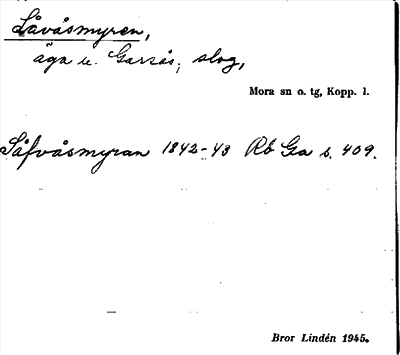 Låvåsmyren,
äga u. Garsås, slog,
Mora sn o. tg, Kopp. l.
Såfvåsmyran 1842-43 Rå Ga s. 409.
Bror Lindén 1945.